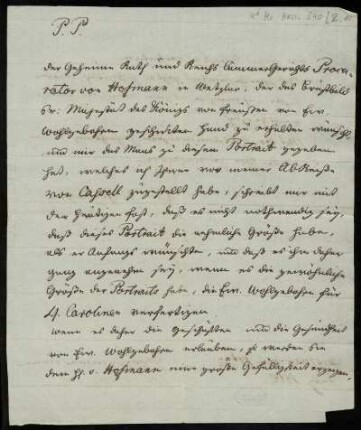 P. P.
Der Geheime Rath und Reichs Cammer Gerichts Procu-
rator von Hofmann in Wetzlar, der das Brustbild
Sr. Majestät des Königs von Preussen von Ew.
Wohlgebohren geschickten Hand zu erhalten wünscht
und mir das Maas zu diesem Portrait gegeben
hat, welches ich Ihnen vor meiner Abreise
von Cassell zugestellt habe, schreibt mir mit
der heutigen Post, daß es nicht nothwendig sey,
daß dieses Portrait die nehmliche Größe habe,
als er Anfangs wünschte, und daß es ihm daher
ganz angenehm sey, wenn es die gewöhnliche
Größe der Portraits habe, die Ew. Wohlgebohren für
4. Carolinen verfertigen
Wenn es daher die Geschäften und die Gesundheit
von Ew. Wohlgebohren erlauben, so werden Sie
dem H. v. Hofmann eine große Gefälligkeit erzeigen,